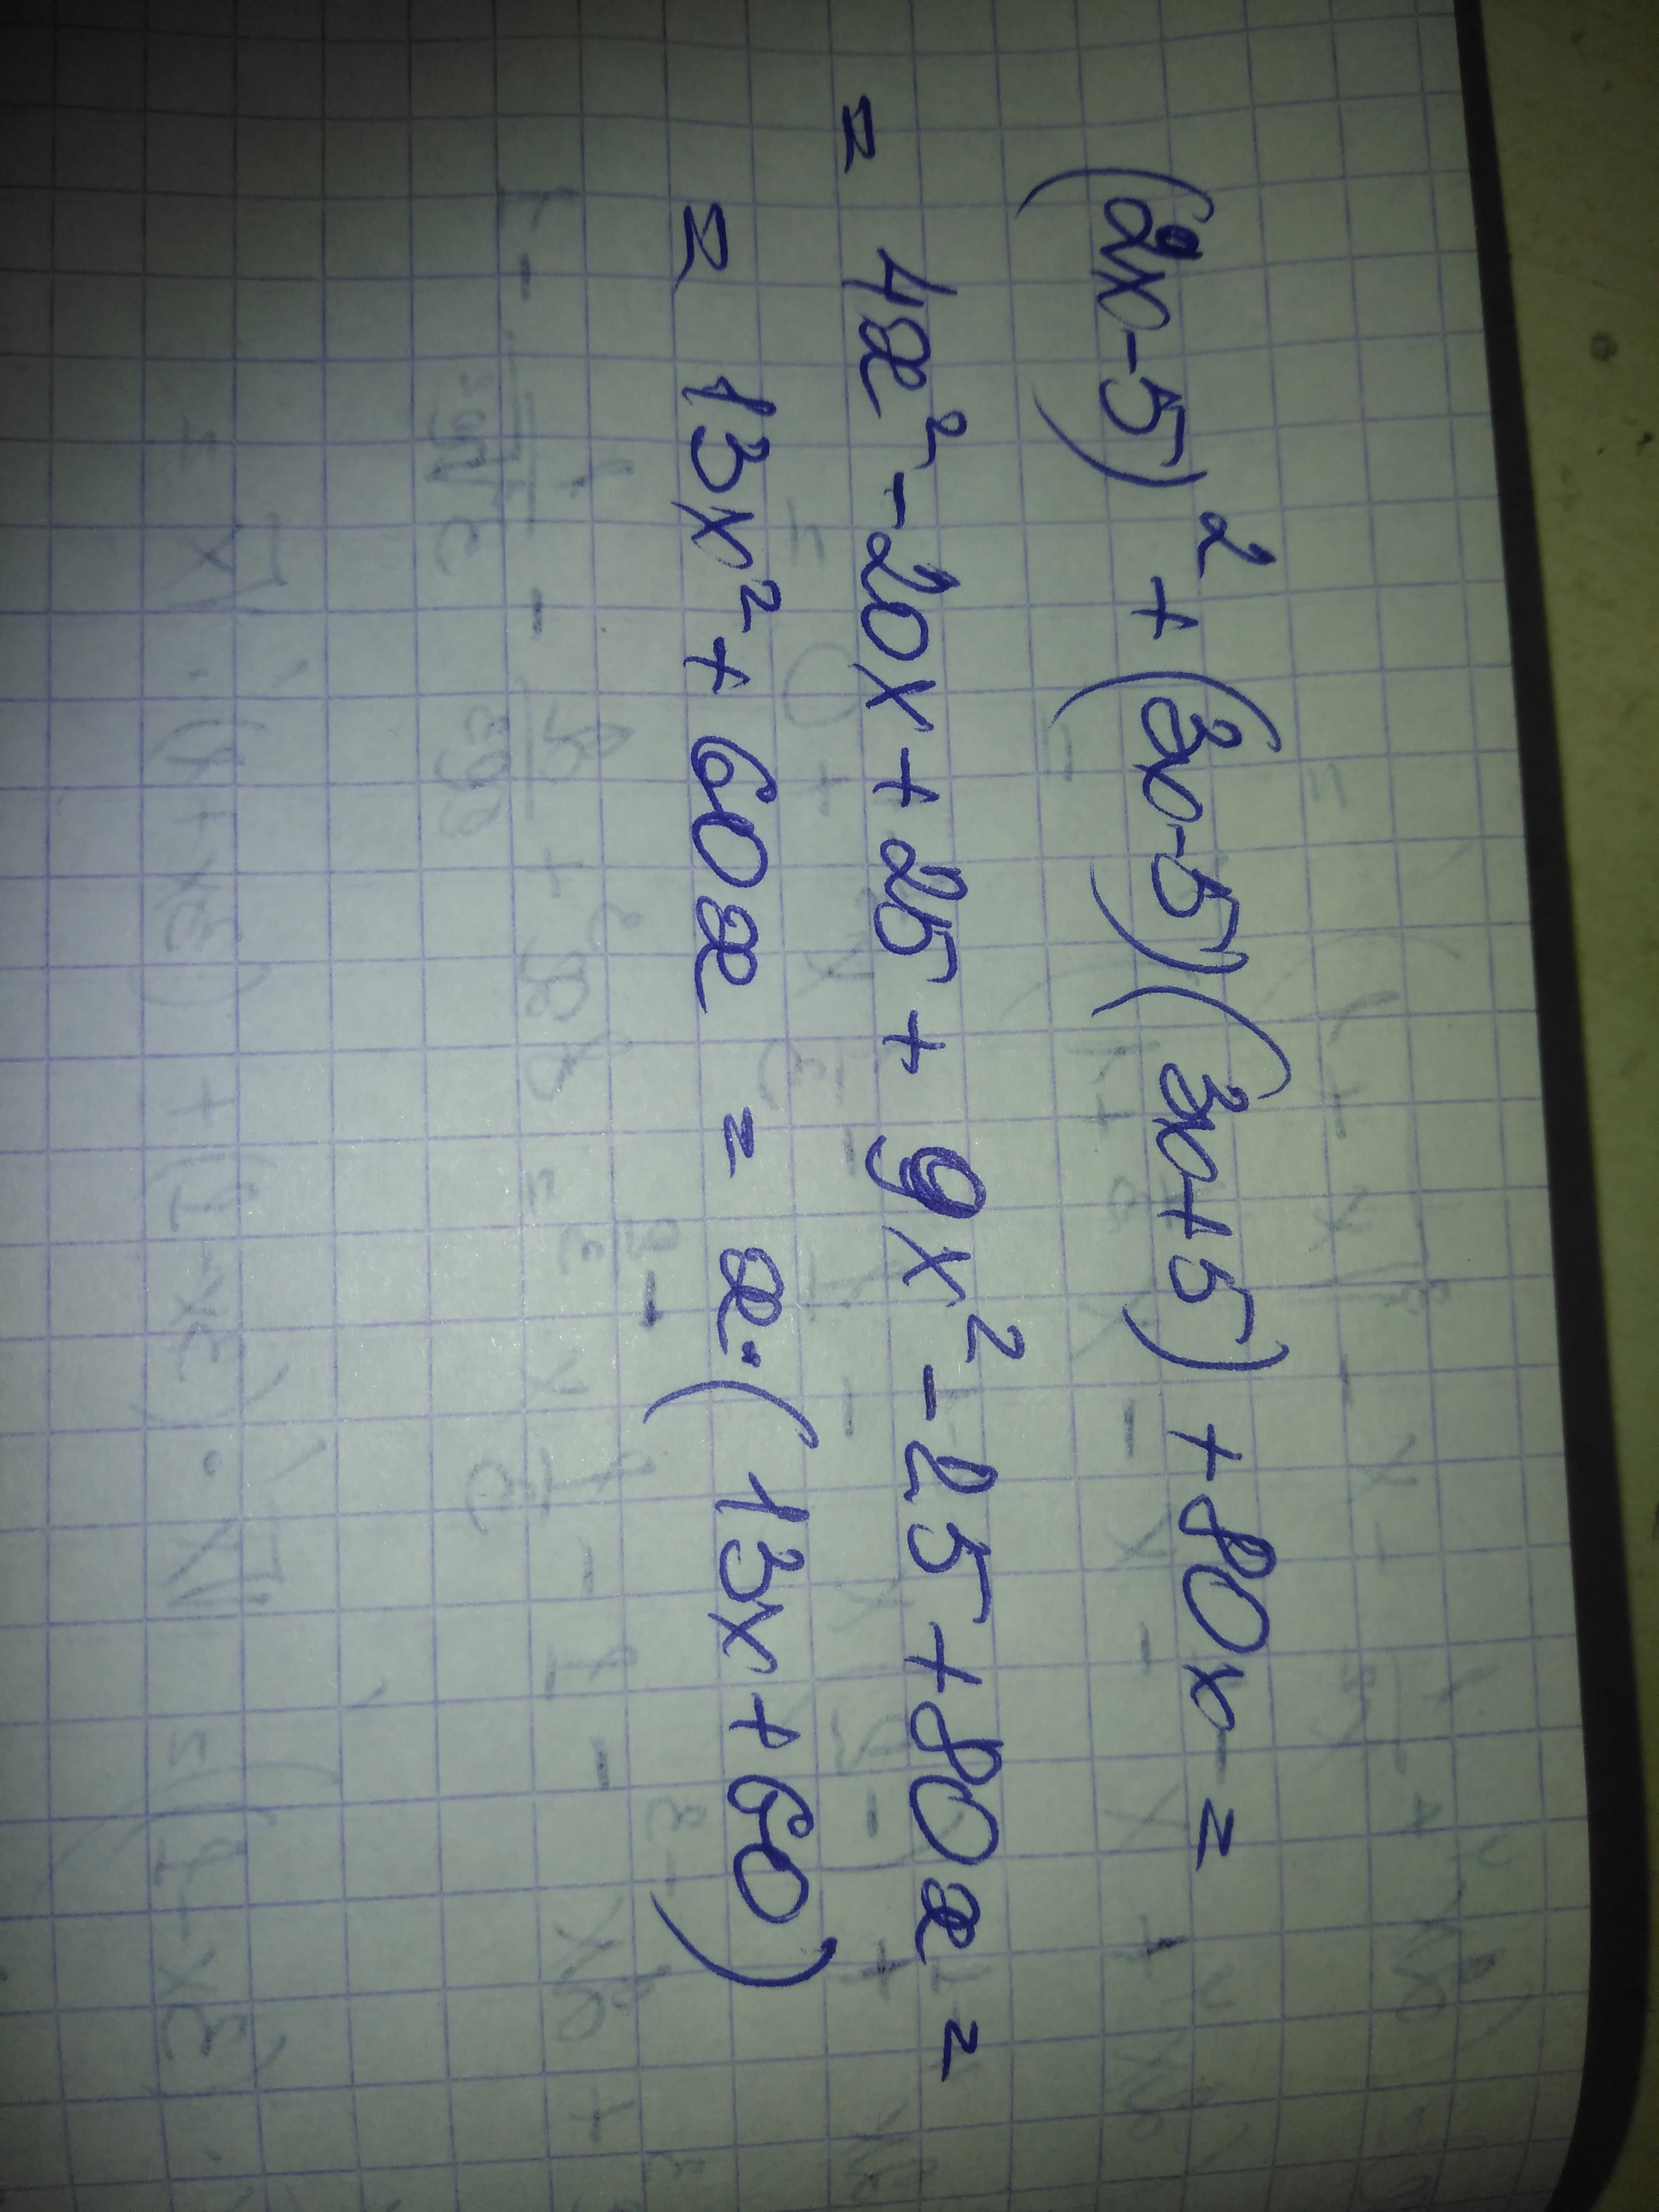 (2x-5)² + (3x-5)(3x+5) + 80x =
= 4x² - 20x + 25 + 9x² - 25 + 80x =
= 13x² + 60x = x·(13x + 60)